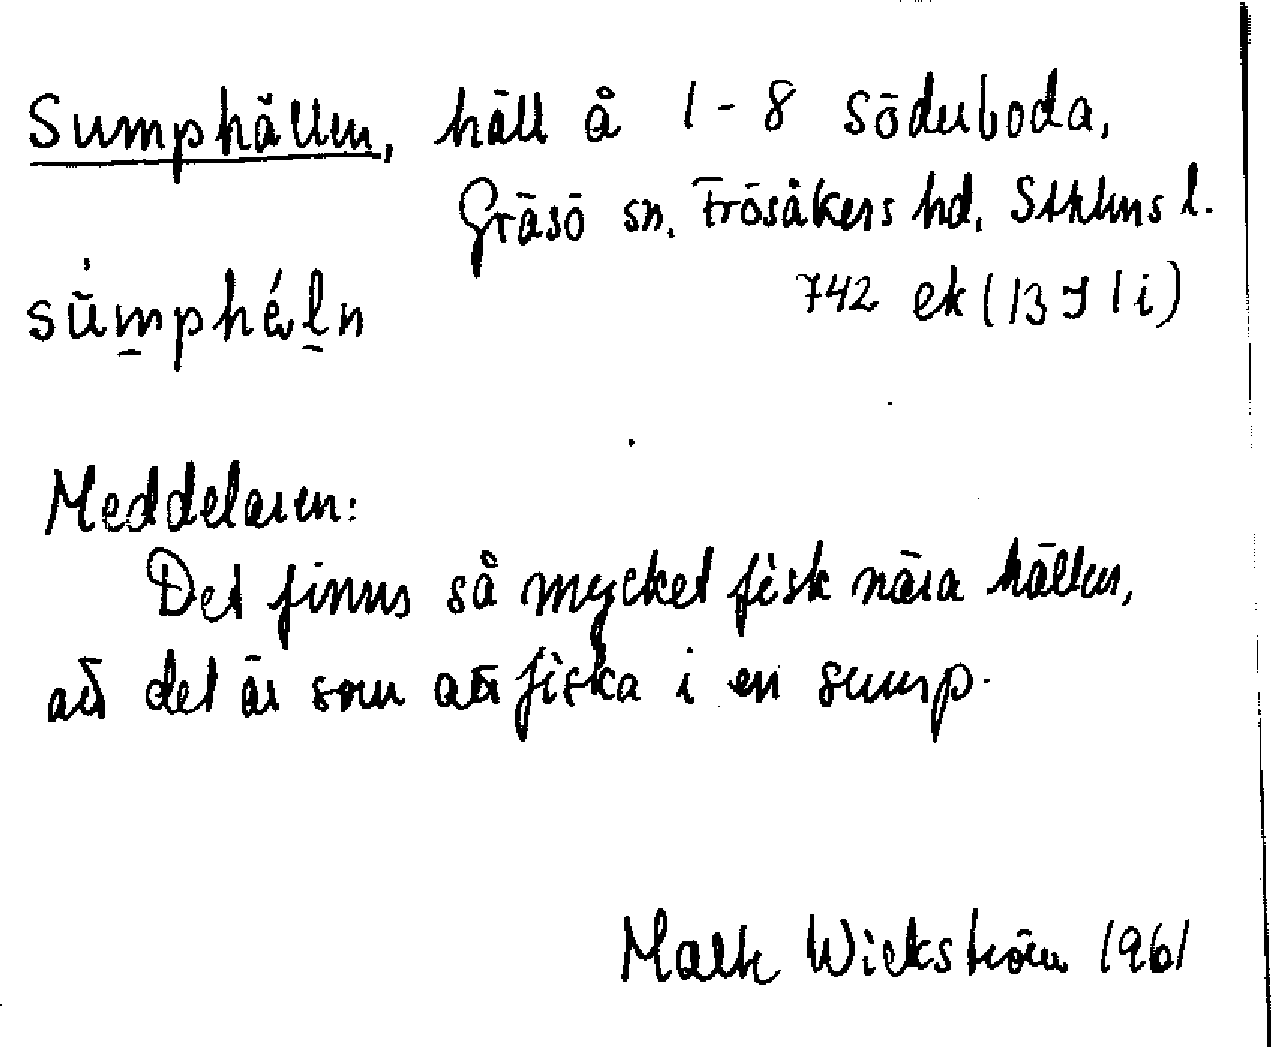 Sumphällen, häll å 1-8 Söderboda,
Gräsö sn. Frösåkers hd. Sthlms l.
742 ek (13 I 1 i)
Meddelaren:
Det finns så mycket fisk nära hällen,
att det är som att fiska i en sump.
Wickström 1961